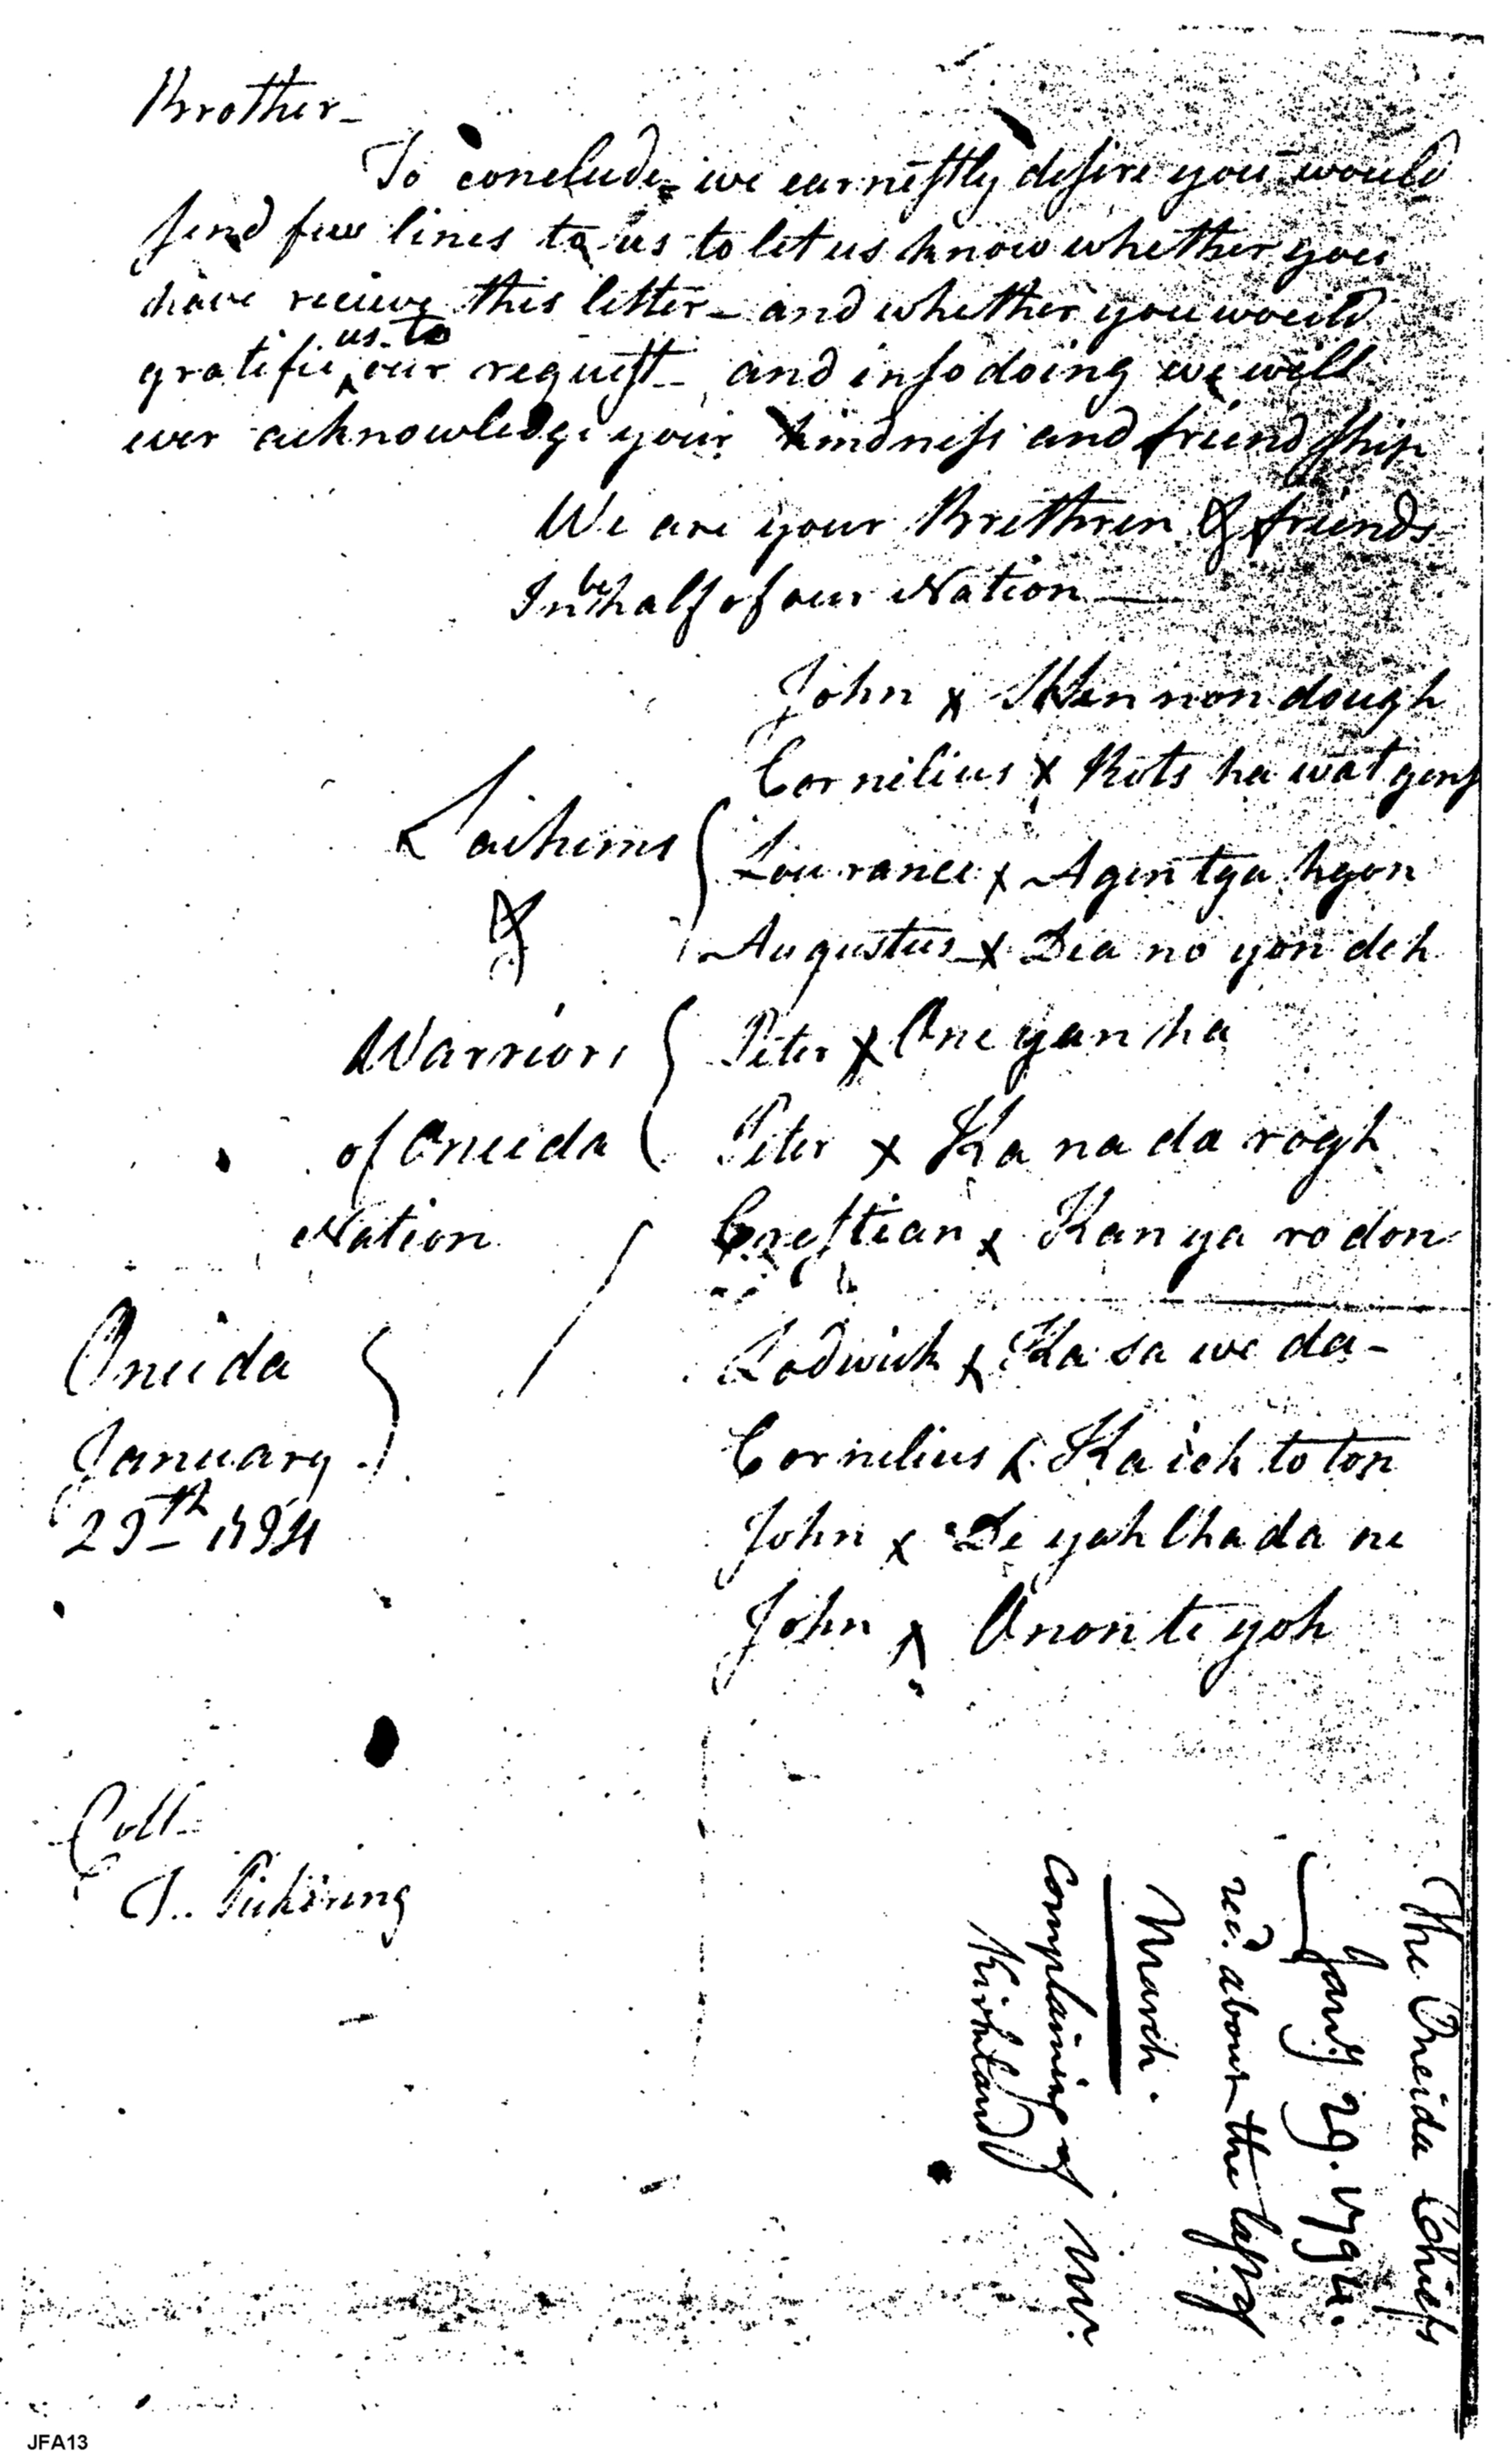 Brother_
To conclude, we earnestly desire you would
send few lines to us to let us know whether you
have recieve this letter_ and whether you would
us to
gratifie ^ our request_ and in so doing we will
ever acknowledge your kindness and friend ship
We are your Brethren & friends
In behalf of our Nation ___
John x Sken non dough
Cornelius x
Sachims Lourance x Agen tga hgon
& Augustus x Dia no yon deh
Warriors Peter x One yan ha
of Oneida Peter x Ka na da rogh
Nation Crestian x Kan ya ro don
Oneida Lodwick x Ka sa we da_
January Cornelius x Ka ieh to ton
29th 1794 John x De yoh Cha da ne
John x Onon ti yoh
Coll_
T. Pickering
The Oneida Chiefs
Jany. 29. 1794.
recd. about the last of
March.
Complaining of Mr.
Kirkland
JFA13